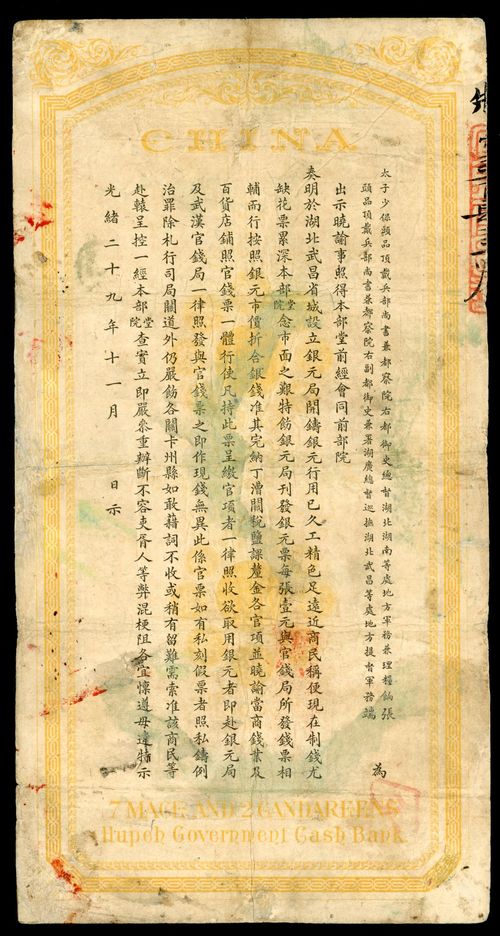 CHINA
太子少保頭品頂戴兵部尚書兼都察院右都御史總督湖北湖南等處地方軍務兼理糧餉張
頭品頂戴兵部尚書兼都察院右副都御史兼署湖廣總督巡撫湖北武昌等處地方提督軍務端
為
出示曉諭事照得本部堂前經會同前部院
奏明於湖北武昌省城設立銀元局開鑄銀元行用已久工精色足遠近商民稱便現在制錢尤
缺花票累深本部堂院念市面之艱特飭銀元局刊發銀元票每張壹元與官錢局所發錢票相
輔而行按照銀元市價折合銀錢准其完納丁漕關稅鹽課釐金各官項並曉諭當商錢業及
百貨店鋪照官錢票一體行使凡持此票呈繳官項者一律照收欲取用銀元者即赴銀元局
及武漢官錢局一律照發與官錢票之即作現錢無異此係官票如有私刻假票者照私鑄例
治罪除札行司局關道外仍嚴飭各關卡州縣如敢藉詞不收或稍有留難需索准該商民等
赴轅呈控一經本部堂院查實立即嚴參重辦斷不容吏胥人等弊混梗阻各宜懍遵毋違特示
光緒二十九年十一月 日示
7 MACE AND 2 CANDAREENS
Hupeh Government Cash Bank.